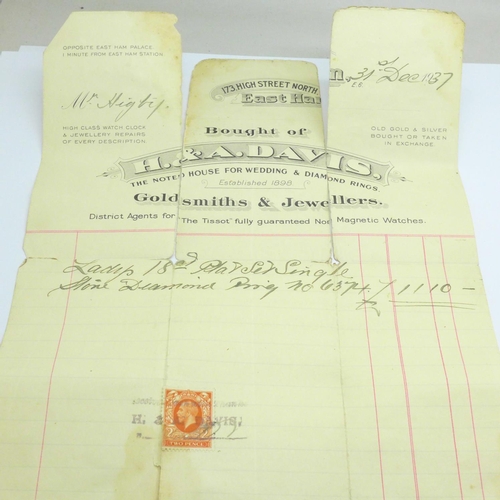 OPPOSITE EAST HAM PALACE.
1 MINUTE FROM EAST HAM STATION.
173, HIGH STREET NORTH,
East Ha
31st Dec 1937
Mr Higby
HIGH CLASS WATCH CLOCK
& JEWELLERY REPAIRS
OF EVERY DESCRIPTION
OLD GOLD & SILVER
BOUGHT OR TAKEN
IN EXCHANGE.
Bought of
H. & A. DAVIS,
THE NOTED HOUSE FOR WEDDING & DIAMOND RINGS,
Established 1898.
Goldsmiths & Jewellers.
District Agents for "The Tissot" fully guaranteed Non Magnetic Watches.
Ladys 18ct Plat Set Single
Stone Diamond Ring No 6574 11 10 -
H. & A. DAVIS.
TWO PENCE